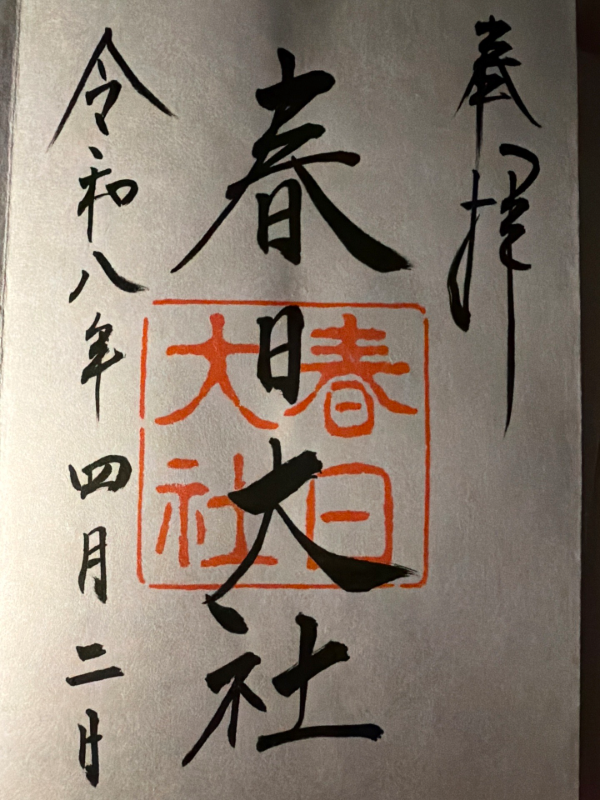 奉拝
春日大社
春日
大社
令和八年四月二日